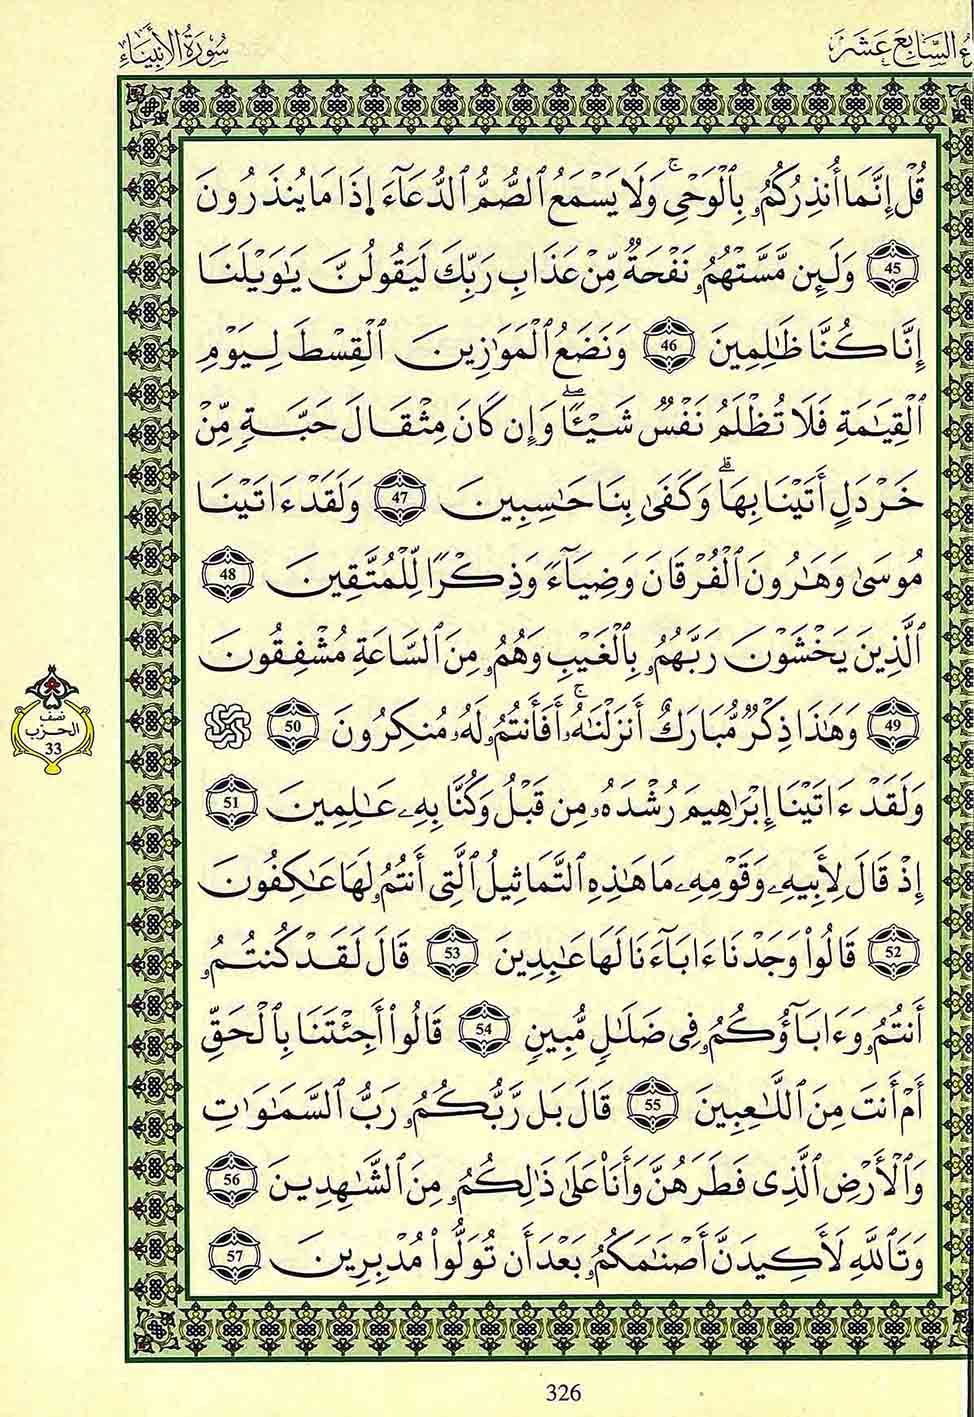 ءُ السَّابِعَ عَشَرَ
سُورَةُ الأَنبِيَاءِ
قُلْ إِنَّمَا أُنذِرُكُمُۥ بِالْوَحْيِ ۚ وَلَا يَسْمَعُ الصُّمُّ الدُّعَآءَ اِ۪ذَا مَا يُنذَرُونَ
45 وَلَئِن مَّسَّتْهُمُۥ نَفْحَةٌ مِّنْ عَذَابِ رَبِّكَ لَيَقُولُنَّ يَٰوَيْلَنَا
إِنَّا كُنَّا ظَٰلِمِينَ 46 وَنَضَعُ الْمَوَٰزِينَ الْقِسْطَ لِيَوْمِ
الْقِيَٰمَةِ فَلَا تُظْلَمُ نَفْسٌ شَيْـًٔا ۖ وَإِن كَانَ مِثْقَالَ حَبَّةٍ مِّنْ
خَرْدَلٍ أَتَيْنَا بِهَا ۗ وَكَفَىٰ بِنَا حَٰسِبِينَ 47 وَلَقَدْ ءَاتَيْنَا
مُوسَىٰ وَهَٰرُونَ الْفُرْقَانَ وَضِيَآءً وَذِكْرًا لِّلْمُتَّقِينَ 48
الَّذِينَ يَخْشَوْنَ رَبَّهُمُۥ بِالْغَيْبِ وَهُمُۥ مِنَ السَّاعَةِ مُشْفِقُونَ
49 وَهَٰذَا ذِكْرٌ مُّبَارَكٌ أَنزَلْنَٰهُ ۚ أَفَأَنتُمُۥ لَهُۥ مُنكِرُونَ 50
وَلَقَدْ ءَاتَيْنَا إِبْرَٰهِيمَ رُشْدَهُۥ مِن قَبْلُ وَكُنَّا بِهِۦ عَٰلِمِينَ 51
إِذْ قَالَ لِأَبِيهِۦ وَقَوْمِهِۦ مَا هَٰذِهِ التَّمَاثِيلُ الَّتِي أَنتُمُۥ لَهَا عَٰكِفُونَ
52 قَالُواْ وَجَدْنَا ءَابَآءَنَا لَهَا عَٰبِدِينَ 53 قَالَ لَقَدْ كُنتُمُۥ
أَنتُمُۥ وَءَابَآؤُكُمُۥ فِي ضَلَٰلٍ مُّبِينٍ 54 قَالُواْ أَجِئْتَنَا بِالْحَقِّ
أَمْ أَنتَ مِنَ اللَّٰعِبِينَ 55 قَالَ بَل رَّبُّكُمُۥ رَبُّ السَّمَٰوَٰتِ
وَالْأَرْضِ الَّذِي فَطَرَهُنَّ وَأَنَا۠ عَلَىٰ ذَٰلِكُمُۥ مِنَ الشَّٰهِدِينَ 56
وَتَاللَّهِ لَأَكِيدَنَّ أَصْنَٰمَكُمُۥ بَعْدَ أَن تُوَلُّواْ مُدْبِرِينَ 57
نصف
الحزب
33
326